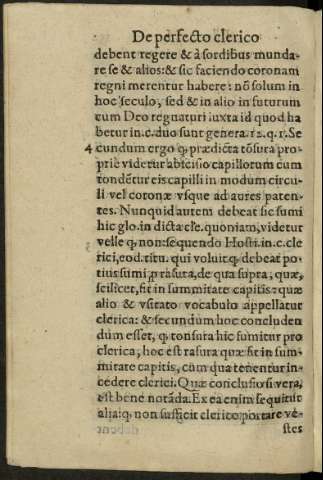 De perfecto clerico
debent regere & à sordibus munda-
re se & alios: & sic faciendo coronam
regni merentur habere: nõ solum in
hoc seculo, sed & in alio in futurum
cum Deo regnaturi iuxta id quod ha
betur in.c.duo sunt genera.12.q.1.Se
4 cundum ergo ꝙ prædicta tõsura pro-
priè videtur abscisio capillorum cum
tondẽtur eis capilli in modum circu-
li vel coronæ vsque ad aures paten-
tes. Nunquid autem debeat sic sumi
hic glo.in dicta cle.quoniam, videtur
velle ꝙ non: sequendo Hosti.in.c.cle
rici, eod.titu. qui voluit ꝙ debeat po-
tius sumi, ꝓ rasura, de qua supra, quæ,
scilicet, fit in summitate capitis: quæ
alio & vsitato vocabulo appellatur
clerica: & secundum hoc concluden
dum esset, ꝙ tonsura hic sumitur pro
clerica, hoc est rasura quæ fit in sum-
mitate capitis, cũm qua tenentur in-
cedere clerici. Quæ conclusio si vera,
est bene notãda. Ex ea enim sequitur
alia: ꝙ non sufficit clerico portare ve-
stes